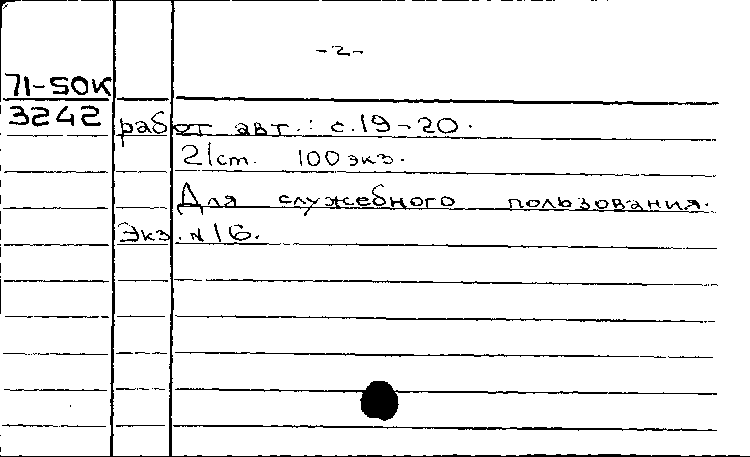 -2-
71-50К
3242
работ авт.: с.19-20.
21см. 100экз.
Для служебного пользования.
Экз. №16.